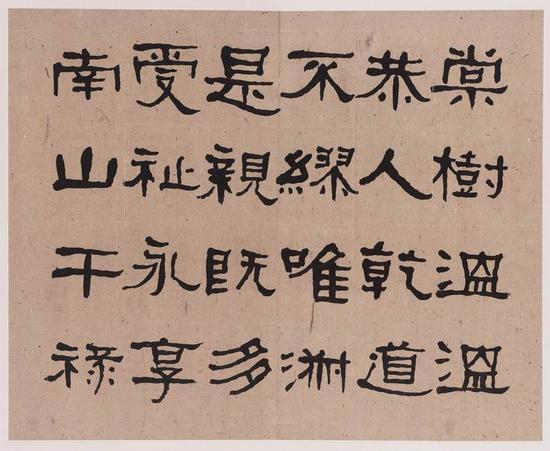 棠樹溫溫
恭人乾道
不繆唯淑
是親既多
受祉永享
南山干祿